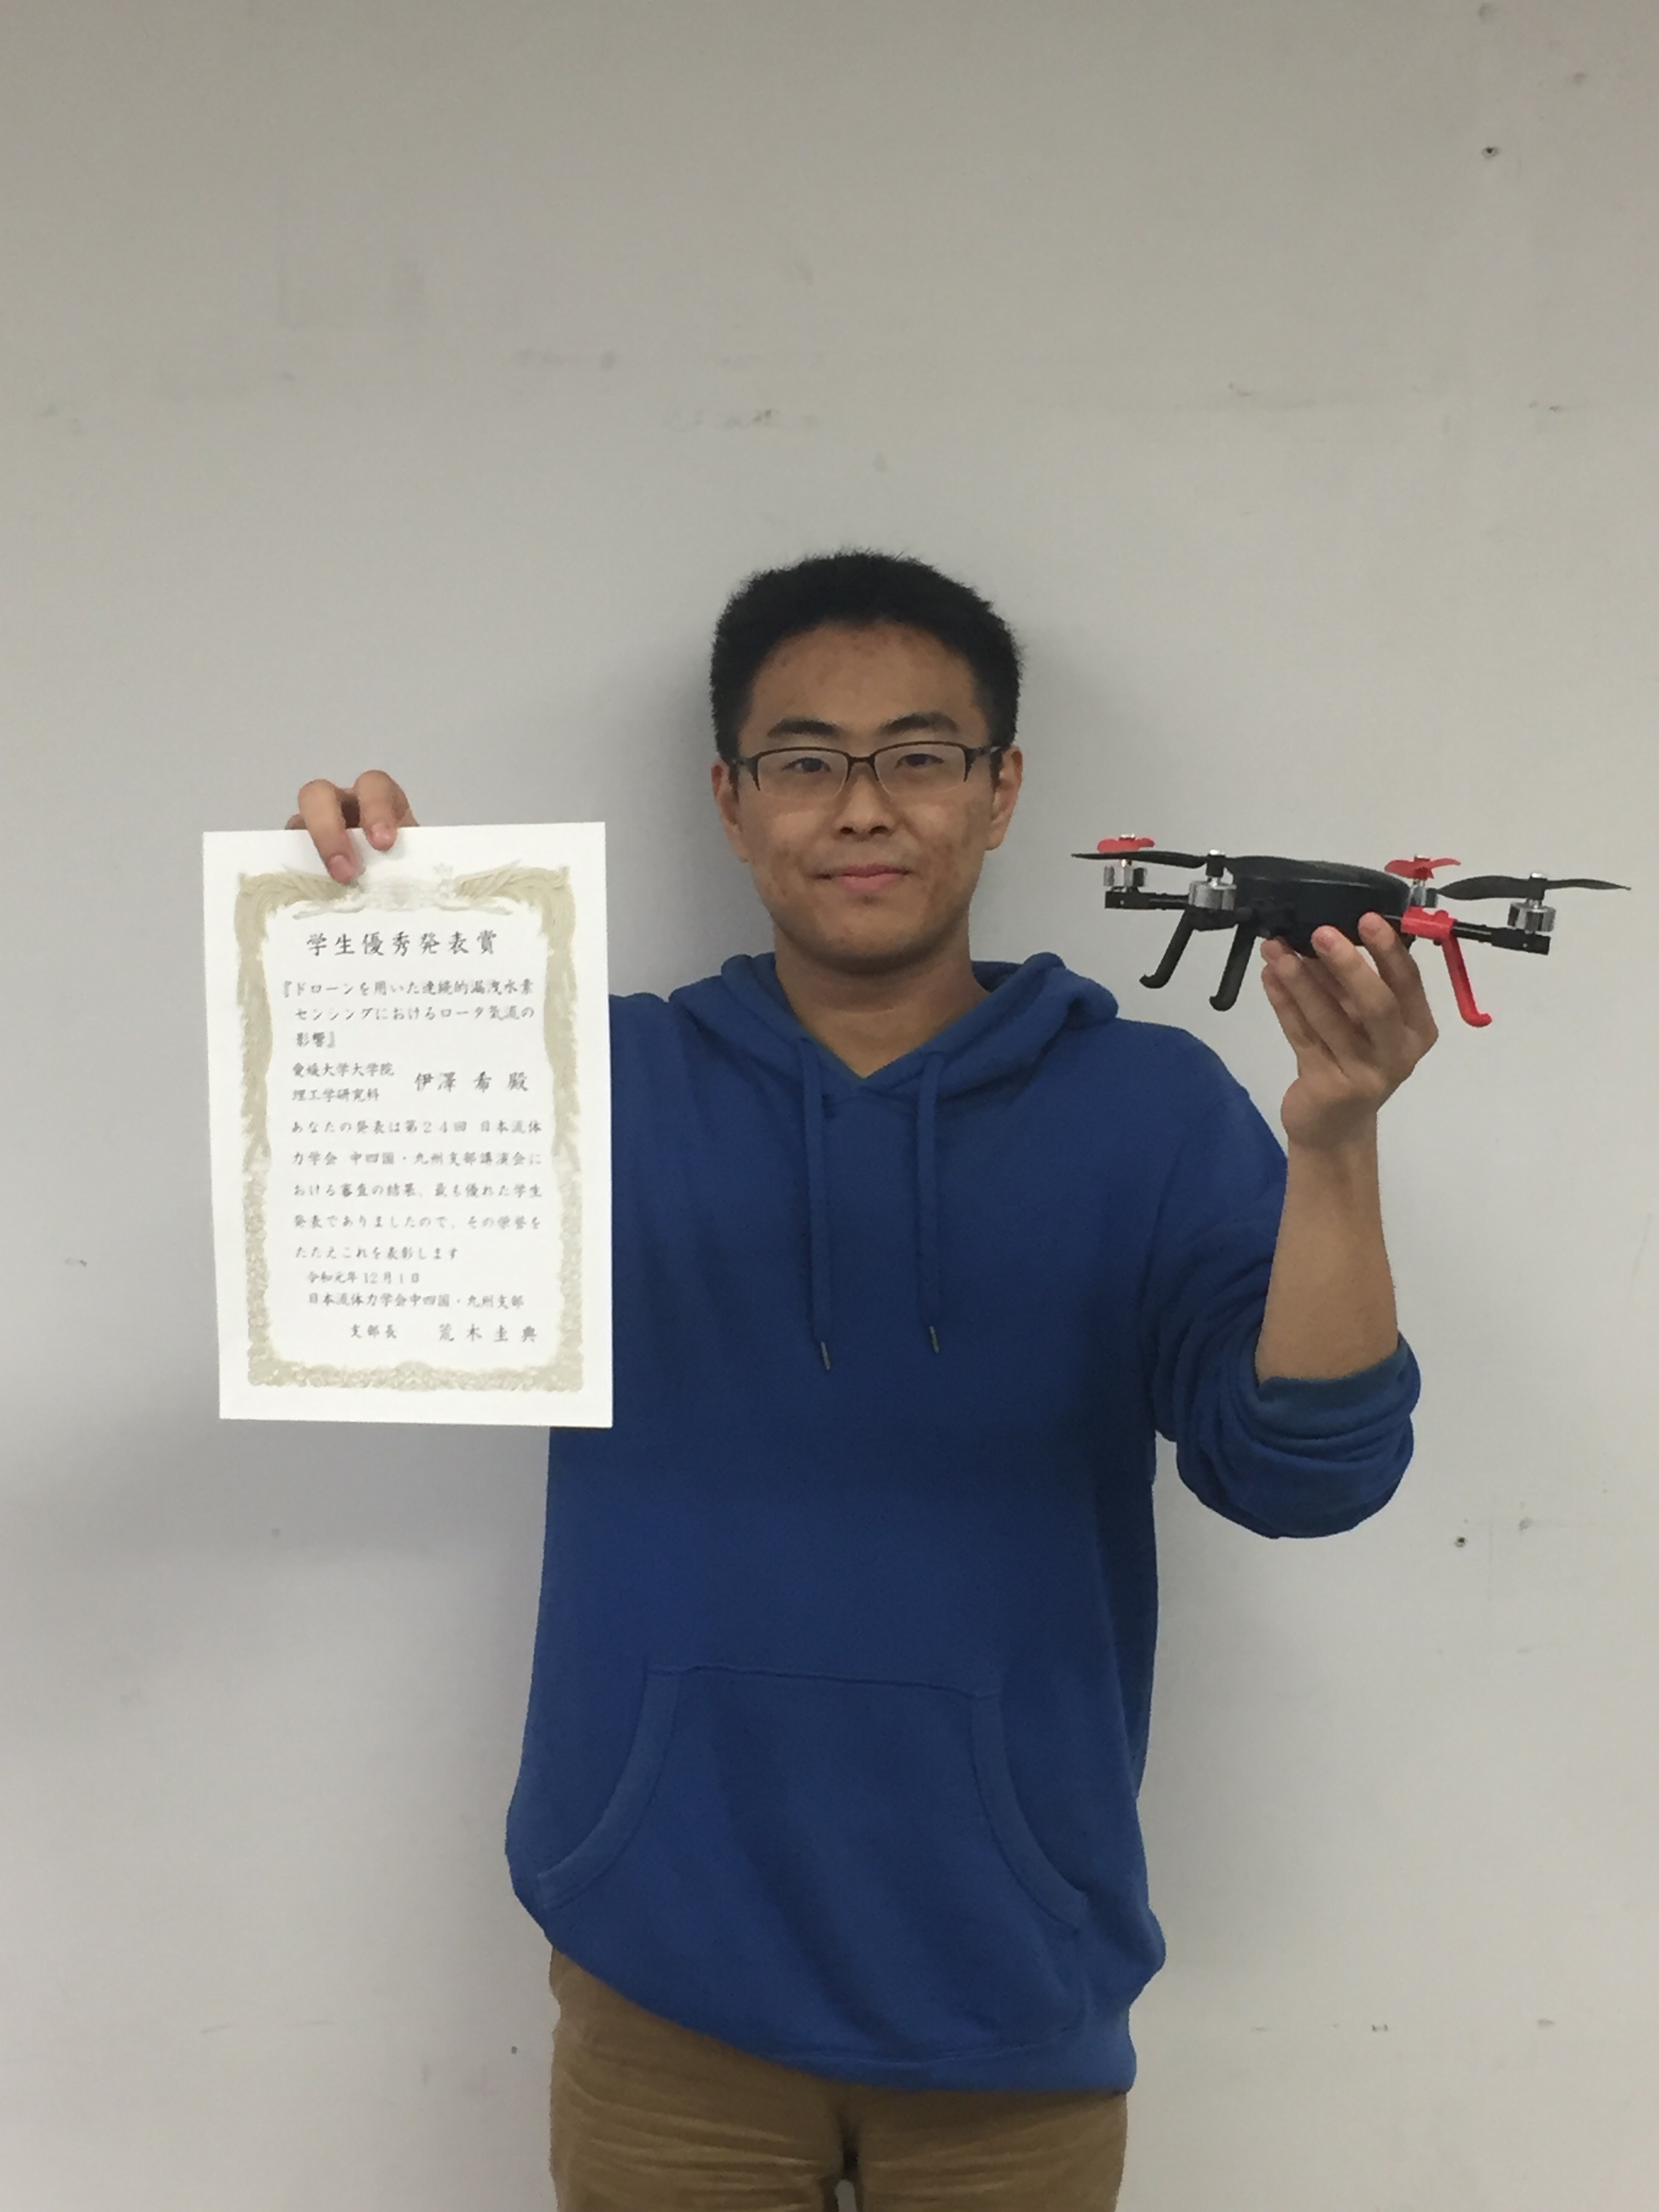 学生優秀発表賞
『ドローンを用いた連続的漏洩水素
センシングにおけるロータ気流の
影響』
愛媛大学大学院
理工学研究科
伊澤 希 殿
あなたの発表は第24回 日本流体
力学会 中四国・九州支部講演会に
おける審査の結果、最も優れた学生
発表でありましたので、その栄誉を
たたえこれを表彰します
令和元年12月1日
日本流体力学会中四国・九州支部
支部長 荒木圭典